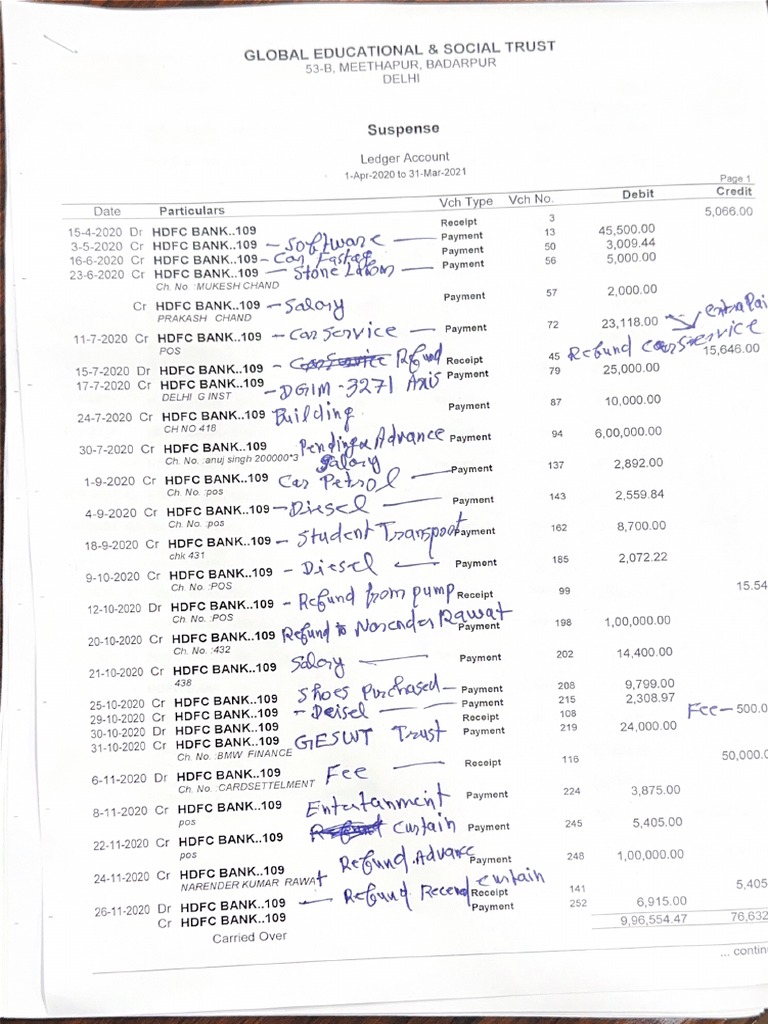 GLOBAL EDUCATIONAL & SOCIAL TRUST
53-B, MEETHAPUR, BADARPUR
DELHI
Suspense
Ledger Account
1-Apr-2020 to 31-Mar-2021
Page 1
Date Particulars Vch Type Vch No. Debit Credit
15-4-2020 Dr HDFC BANK..109 Receipt 3 5,066.00
3-5-2020 Cr HDFC BANK..109 - Software — Payment 13 45,500.00
16-6-2020 Cr HDFC BANK..109 - Car Fastag Payment 50 3,009.44
23-6-2020 Cr HDFC BANK..109 - Stone — Payment 56 5,000.00
Ch. No. :MUKESH CHAND
Cr HDFC BANK..109 - Salary Payment 57 2,000.00
PRAKASH CHAND
11-7-2020 Cr HDFC BANK..109 - Car Service — Payment 72 23,118.00 extra Pai
POS
15-7-2020 Dr HDFC BANK..109 - Refund Receipt 45 Refund car service 15,646.00
17-7-2020 Cr HDFC BANK..109 - DGIM-3271 Axis Payment 79 25,000.00
DELHI G INST
24-7-2020 Cr HDFC BANK..109 Building Payment 87 10,000.00
CH NO 418
30-7-2020 Cr HDFC BANK..109 Pending & Advance Payment 94 6,00,000.00
Ch. No. :anuj singh 200000*3 Salary
1-9-2020 Cr HDFC BANK..109 Car Petrol — Payment 137 2,892.00
Ch. No. :pos
4-9-2020 Cr HDFC BANK..109 - Diesel — Payment 143 2,559.84
Ch. No. :pos
18-9-2020 Cr HDFC BANK..109 - Student Transpoot Payment 162 8,700.00
chk 431
9-10-2020 Cr HDFC BANK..109 - Diesel — Payment 185 2,072.22
Ch. No. :POS
12-10-2020 Dr HDFC BANK..109 - Refund from pump Receipt 99 15.54
Ch. No. :POS
20-10-2020 Cr HDFC BANK..109 Refund to Narender Rawat Payment 198 1,00,000.00
Ch. No. :432
21-10-2020 Cr HDFC BANK..109 Salary — Payment 202 14,400.00
438
25-10-2020 Cr HDFC BANK..109 Shoes Purchased — Payment 208 9,799.00
29-10-2020 Cr HDFC BANK..109 - Deisel — Payment 215 2,308.97
30-10-2020 Dr HDFC BANK..109 Receipt 108 Fee — 500.0
31-10-2020 Cr HDFC BANK..109 GESWT Trust Payment 219 24,000.00
Ch. No. :BMW FINANCE
6-11-2020 Dr HDFC BANK..109 Fee — Receipt 116 50,000.0
Ch. No. :CARDSETTELMENT
8-11-2020 Cr HDFC BANK..109 Entertanment Payment 224 3,875.00
pos
22-11-2020 Cr HDFC BANK..109 Curtain Payment 245 5,405.00
pos
24-11-2020 Cr HDFC BANK..109 Refund Advance Payment 248 1,00,000.00
NARENDER KUMAR RAWAT
26-11-2020 Dr HDFC BANK..109 — Refund Curtain Receipt 141 5,405
Cr HDFC BANK..109 Payment 252 6,915.00
Carried Over 9,96,554.47 76,632
... contin